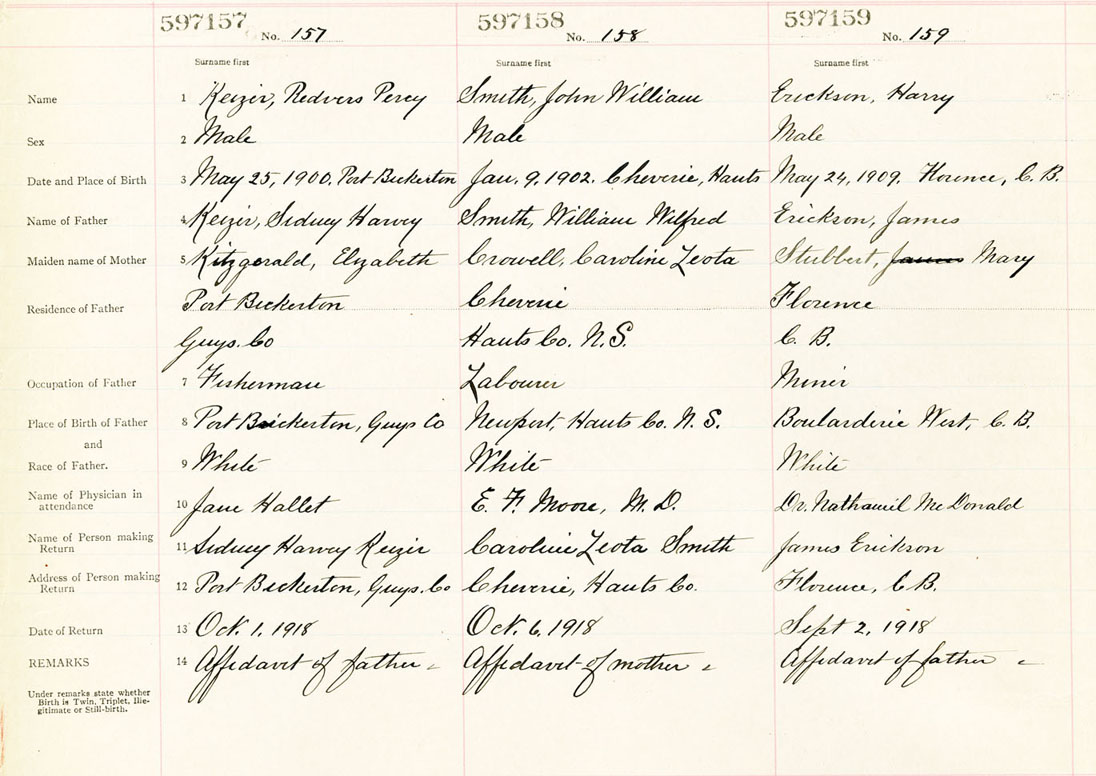 597157 597158 597159
No. 157 No. 158 No. 159
Surname first Surname first Surname first
Name 1 Keizer, Redvers Percy Smith, John William Erickson, Harry
Sex 2 Male Male Male
Date and Place of Birth 3 May 25, 1900. Port Bickerton Jan. 9. 1902. Cheverie, Hants May 24, 1909. Florence, C. B.
Name of Father 4 Keizer, Sidney Harvey Smith, William Wilfred Erickson, James
Maiden name of Mother 5 Fitzgerald, Elyzabeth Crowell, Caroline Leota Stubbert, James Mary
Residence of Father Port Bickerton Cheverie Florence
Guys. Co Hants Co. N. S. C. B.
Occupation of Father 7 Fisherman Labourer Miner
Place of Birth of Father 8 Port Bickerton, Guys Co Newport, Hants Co. N. S. Boularderie West, C. B.
and
Race of Father. 9 White White White
Name of Physician in
attendance 10 Jane Hallet E. F. Moore, M. D. Dr. Nathaniel McDonald
Name of Person making
Return 11 Sidney Harvey Keizer Caroline Leota Smith James Erickson
Address of Person making
Return 12 Port Bickerton, Guys. Co Cheverie, Hants Co. Florence, C. B.
Date of Return 13 Oct. 1, 1918 Oct. 6, 1918 Sept 2, 1918
REMARKS 14 Affidavit of father Affidavit of mother Affidavit of father
Under remarks state whether
Birth is Twin, Triplet, Ille-
gitimate or Still-birth.